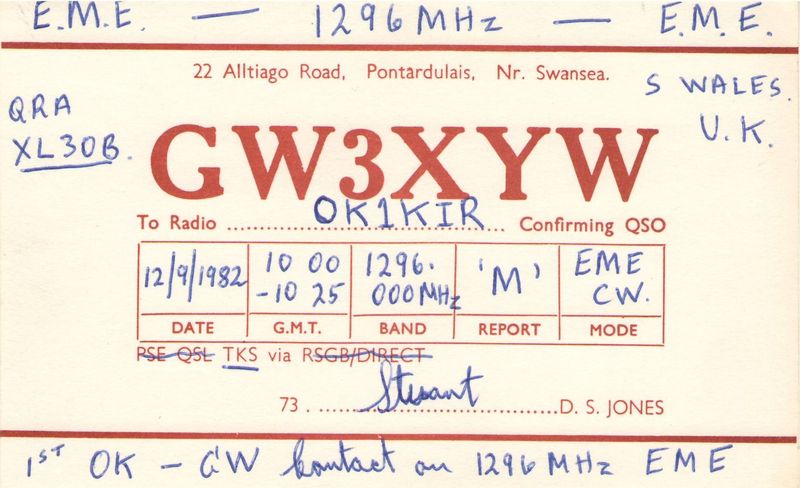 E.M.E. — 1296 MHz — E.M.E.
22 Alltiago Road, Pontardulais, Nr. Swansea.
S WALES.
U.K.
QRA
XL30B.
GW3XYW
To Radio OK1KIR Confirming QSO
12/9/1982 10 00 -10 25 1296.000MHz 'M' EME CW.
DATE G.M.T. BAND REPORT MODE
PSE QSL TKS via RSGB/DIRECT
73. Stewart D. S. JONES
1ST OK - GW Contact on 1296 MHz EME